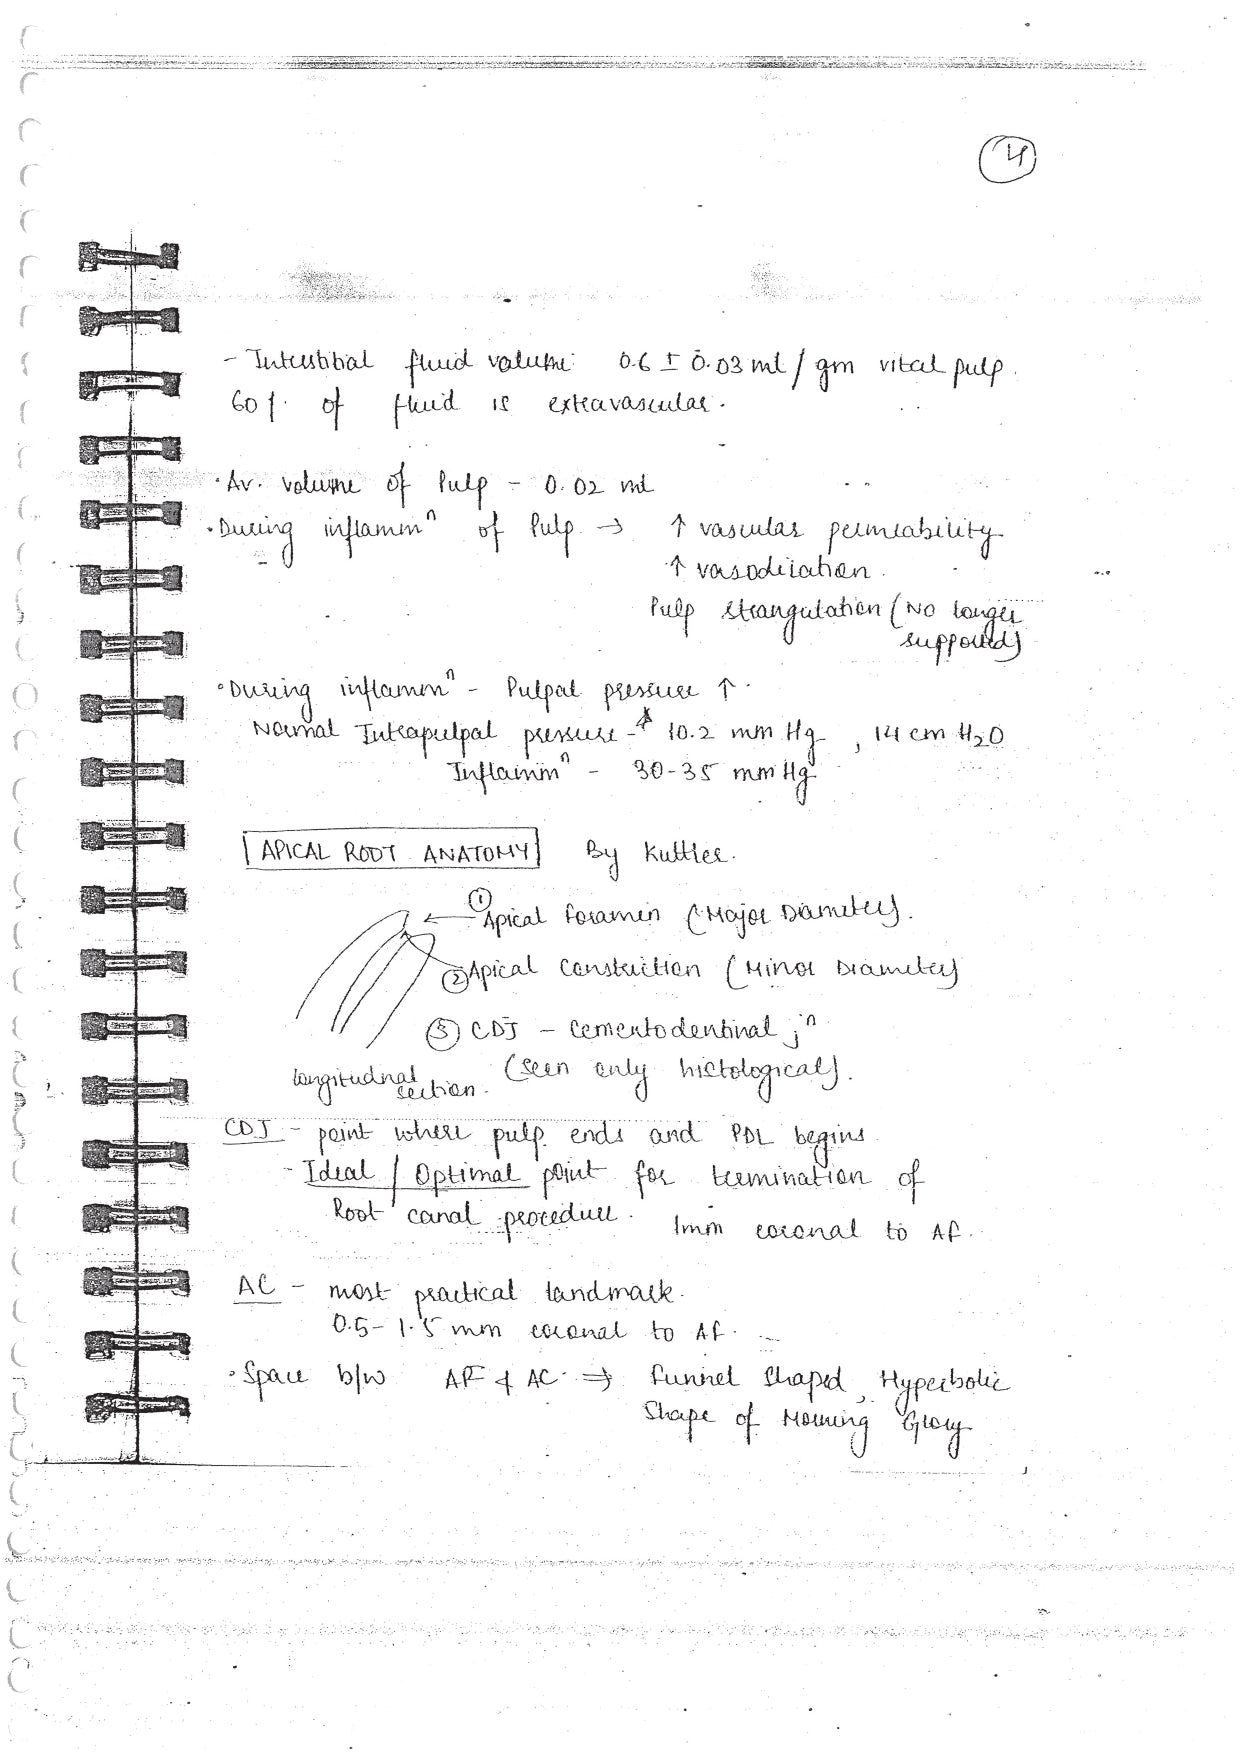 4
- Interstitial fluid volume: 0.6 ± 0.03 ml / gm vital pulp.
60 %. of fluid is extravascular.
• Av. volume of Pulp - 0.02 ml
• During inflammⁿ of Pulp → ↑ vascular permeability
↑ vasodilation.
Pulp strangulation (No longer
supported)
• During inflammⁿ - Pulpal pressure ↑.
Normal Intrapulpal pressure - 10.2 mm Hg, 14 cm H₂O
Inflammⁿ - 30-35 mm Hg
APICAL ROOT ANATOMY By Kuttler.
① Apical foramen (Major Diameter).
② Apical Constriction (Minor Diameter)
③ CDJ - Cementodentinal jⁿ
(seen only histological).
longitudinal
section.
CDJ - point where pulp ends and PDL begins
- Ideal / Optimal point for termination of
Root canal procedure. 1mm coronal to AF.
AC - most practical landmark.
0.5 - 1.5 mm coronal to AF.
• Space b/w AF & AC ⇒ Funnel Shaped, Hyperbolic
Shape of Morning Glory